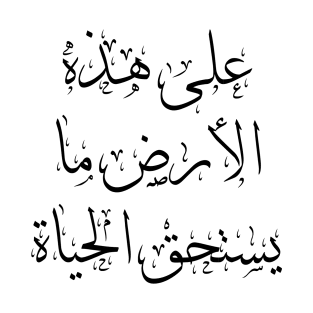 على هذه
الأرض ما
يستحق الحياة